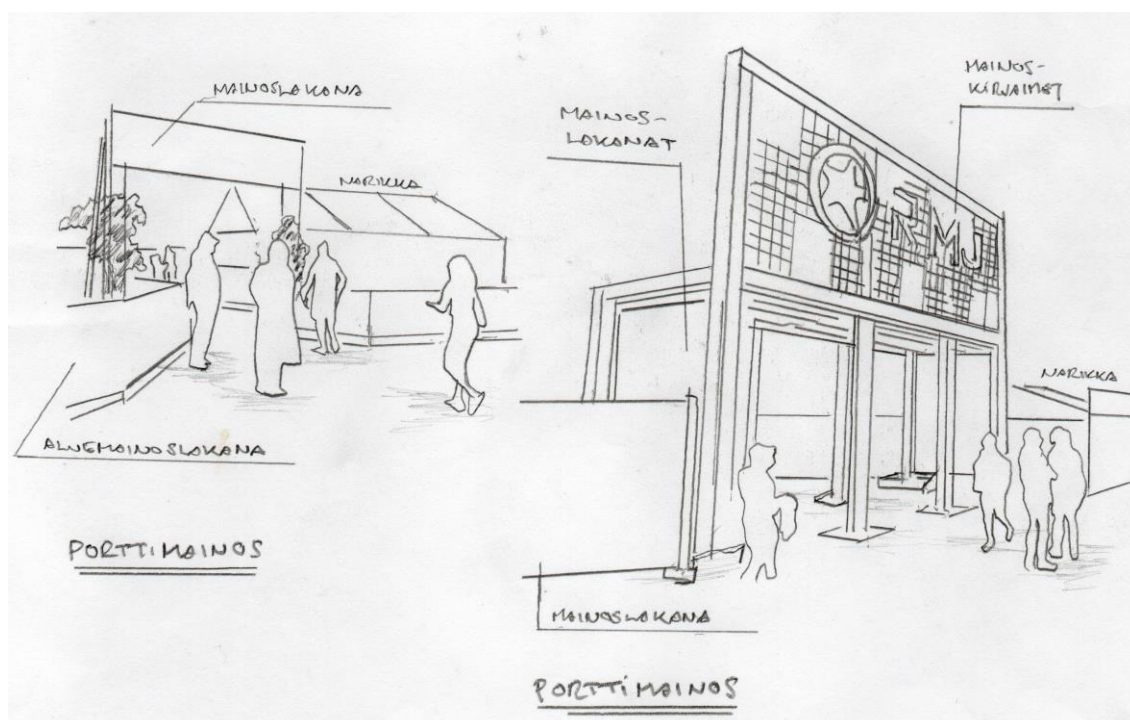 MAINOSLAKANA
NARIKKA
ALUEMAINOSLAKANA
PORTTIMAINOS
MAINOS-
LAKANAT
MAINOS-
KIRJAIMET
RMJ
NARIKKA
MAINOSLAKANA
PORTTIMAINOS